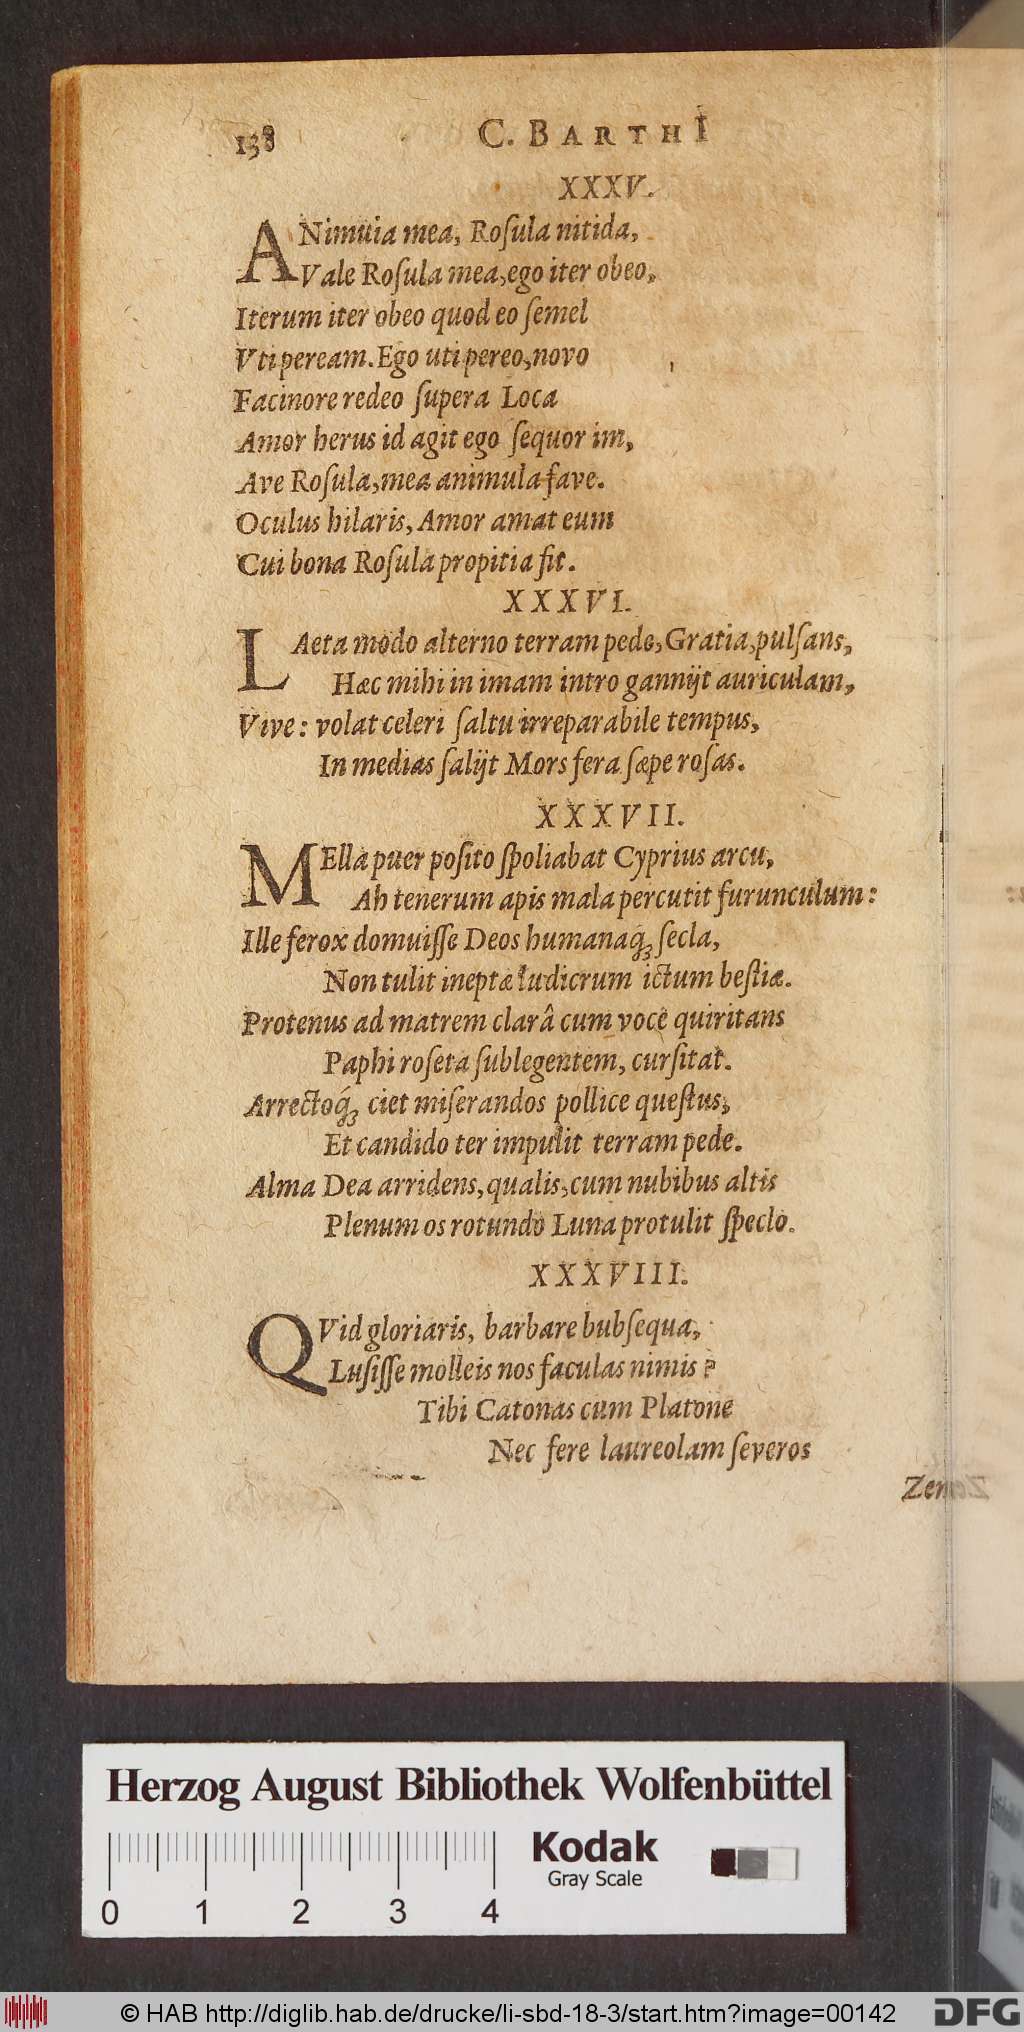 138 C. BARTHI
XXXV.
ANimuia mea, Roſula nitida,
Vale Roſula mea, ego iter obeo,
Iterum iter obeo quod eo ſemel
Vti peream. Ego uti pereo, novo
Facinore redeo ſupera Loca
Amor herus id agit ego ſequor im,
Ave Roſula, mea animula fave.
Oculus hilaris, Amor amat eum
Cui bona Roſula propitia fit.
XXXVI.
LAeta modo alterno terram pede, Gratia, pulſans,
Hæc mihi in imam intro gannijt auriculam,
Vive: volat celeri ſaltu irreparabile tempus,
In medias ſalijt Mors fera ſæpe roſas.
XXXVII.
MElla puer poſito ſpoliabat Cyprius arcu,
Ah tenerum apis mala percutit furunculum:
Ille ferox domuiſſe Deos humanaq́ꝫ ſecla,
Non tulit ineptæ ludicrum ictum beſtiæ.
Protenus ad matrem clarâ cum voce quiritans
Paphi roſeta ſublegentem, curſitat.
Arrectoq́ꝫ ciet miſerandos pollice queſtus,
Et candido ter impulit terram pede.
Alma Dea arridens, qualis, cum nubibus altis
Plenum os rotundo Luna protulit ſpeclo.
XXXVIII.
QVid gloriaris, barbare bubſequa,
Luſiſſe molleis nos faculas nimis?
Tibi Catonas cum Platone
Nec fere laureolam ſeveros
Herzog August Bibliothek Wolfenbüttel
Kodak
Gray Scale
0 1 2 3 4
© HAB http://diglib.hab.de/drucke/li-sbd-18-3/start.htm?image=00142
DFG